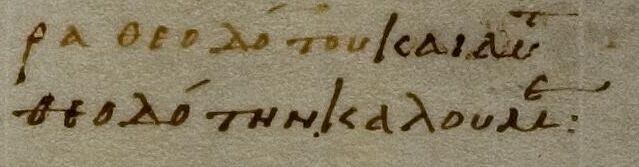 ρα θεοδότου και αυτ
θεοδότην καλουμε: